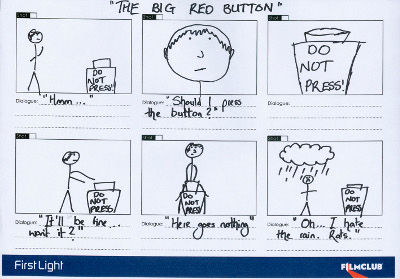 "THE BIG RED BUTTON"
Shot:
DO
NOT
PRESS!
Dialogue: "Hmm ..."
Shot:
Dialogue: "Should I press
the button?"
Shot:
DO
NOT
PRESS!
Dialogue:
Shot:
DO
NOT
PRESS!
Dialogue: "It'll be fine...
won't it?"
Shot:
DO
NOT
PRESS!
Dialogue: "Here goes nothing"
Shot:
DO
NOT
PRESS!
Dialogue: "Oh... I hate
the rain. Rats."
First Light
FILMCLUB